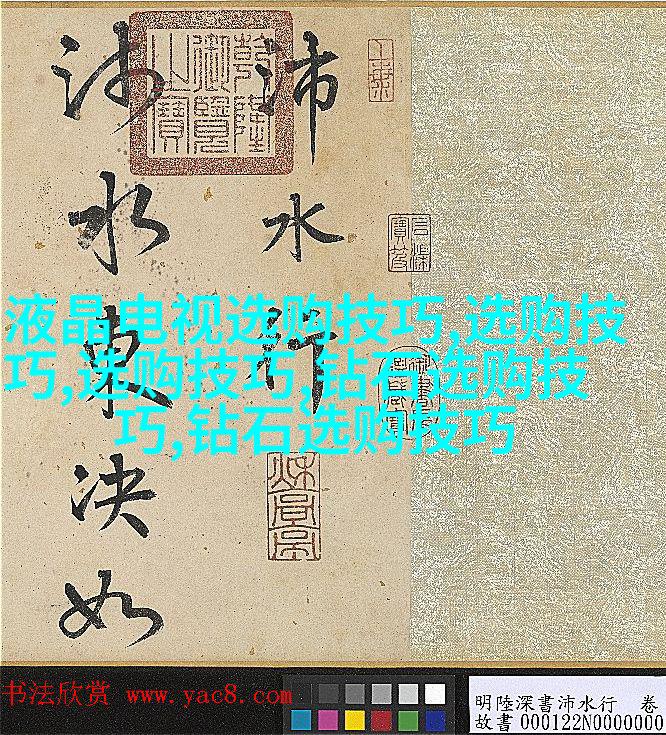 沛水行
沛水東決如
乾隆
御覽
之寶
液晶电视选购技巧,选购技
巧,选购技巧,钻石选购技
巧,钻石选购技巧
书法欣赏 www.yac8.com
明陸深書沛水行 卷
故書000122N0000000